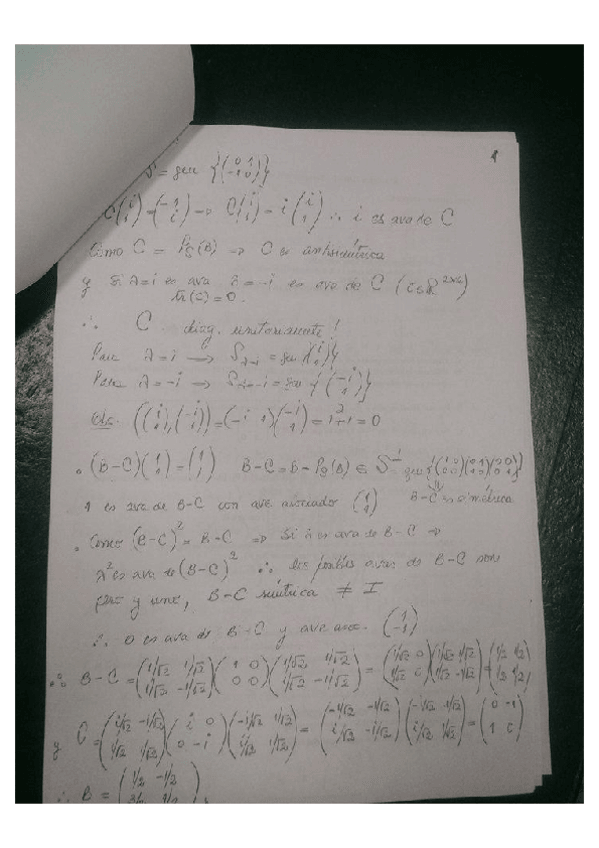 S = gen {(0 1 / -1 0)}
C(i / 1) = (-1 / i) → C(i / 1) = i (i / 1) ∴ i es ava de C
Como C = P_S(B) → C es antisimétrica
y si λ=i es ava λ̄ = -i es ava de C (C∈R^{2x2})
tr(C) = 0.
∴ C diag. unitariamente!
Para λ=i → S_{λ=i} = gen {(i / 1)}
Para λ=-i → S_{λ=-i} = gen {(-i / 1)}
Obs. ((i / 1),(-i / 1)) = (-i 1)(-i / 1) = i²+1 = 0
• (B-C)(1 / 1) = (1 / 1) B-C = B-P_S(B) ∈ S^⊥ = gen {(1 0 / 0 0)(0 1 / 1 0)(0 0 / 0 1)}
1 es ava de B-C con ave asociado (1 / 1) B-C es simétrica
• Como (B-C)² = B-C ⇒ Si λ es ava de B-C ⇒
λ² es ava de (B-C)² ∴ los posibles avas de B-C son
y uno, B-C simétrica ≠ I
∴ 0 es ava de B-C y ave asoc. (1 / -1)
∴ B-C = (1/√2 1/√2 / 1/√2 -1/√2)(1 0 / 0 0)(1/√2 1/√2 / 1/√2 -1/√2) = (1/√2 0 / 1/√2 0)(1/√2 1/√2 / 1/√2 -1/√2) = (1/2 1/2 / 1/2 1/2)
y C = (i/√2 -i/√2 / 1/√2 1/√2)(i 0 / 0 -i)(-i/√2 1/√2 / i/√2 1/√2) = (-1/√2 -1/√2 / i/√2 -i/√2)(-i/√2 1/√2 / i/√2 1/√2) = (0 -1 / 1 0)
∴ B = (1/2 -1/2 / 3/2 1/2)